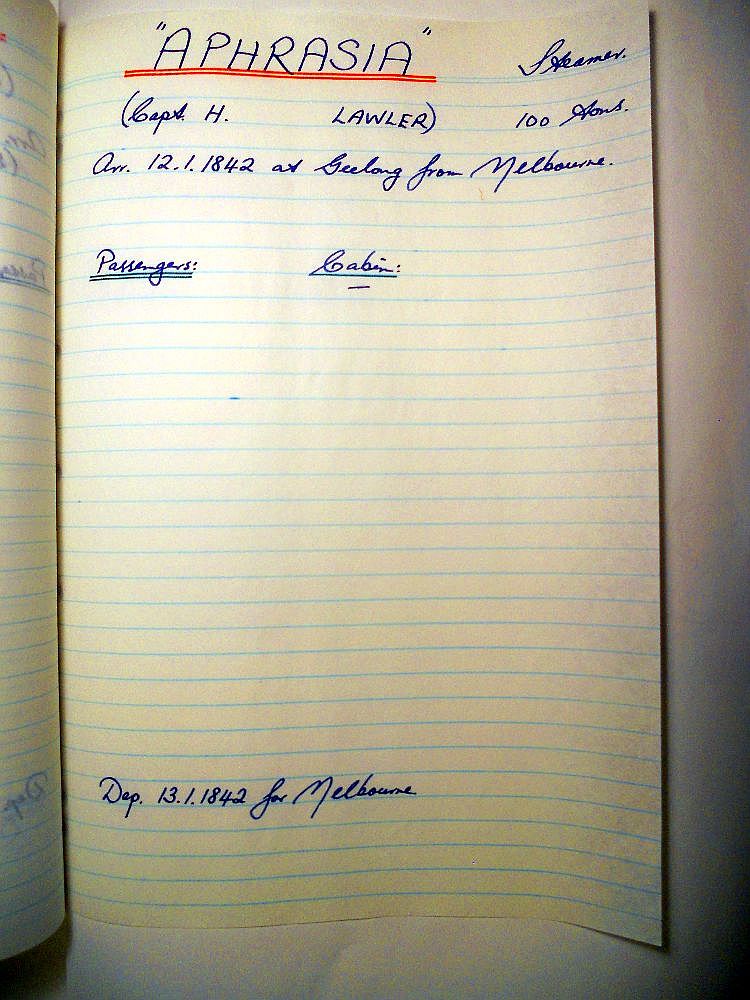 "APHRASIA" Steamer.
(Capt. H. LAWLER) 100 tons.
Arr. 12.1.1842 at Geelong from Melbourne.
Passengers: Cabin:
—
Dep. 13.1.1842 for Melbourne